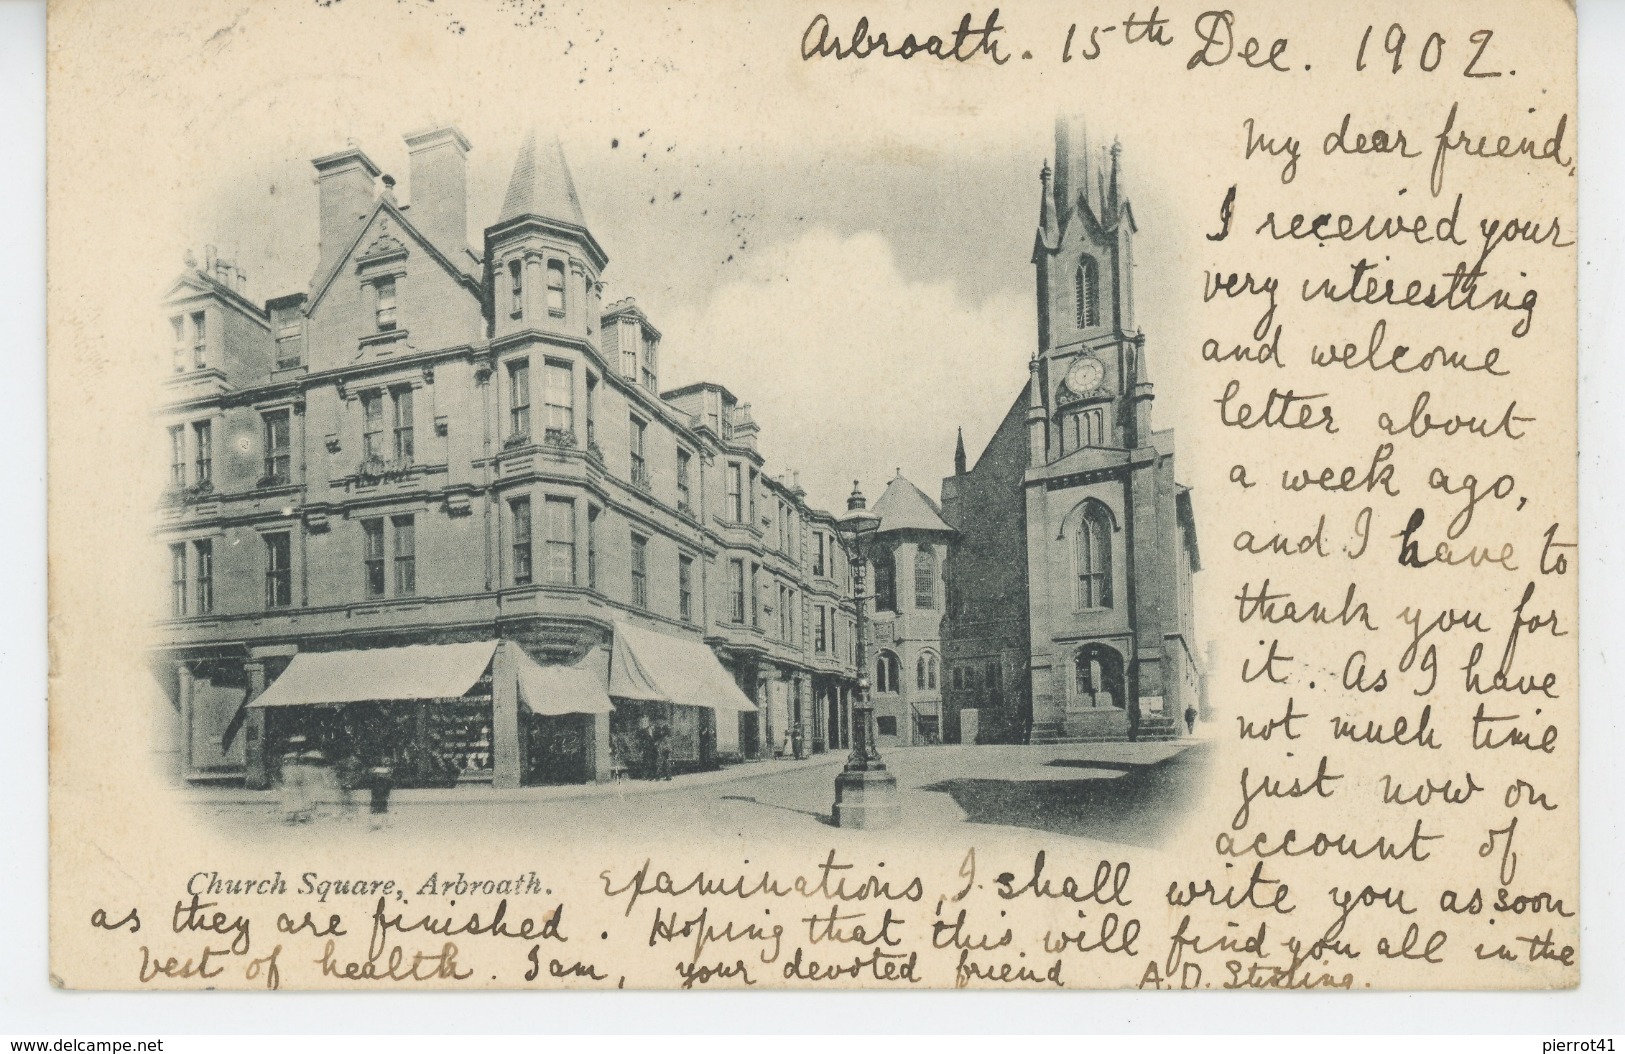 Arbroath. 15th Dec. 1902.
My dear friend,
I received your
very interesting
and welcome
letter about
a week ago,
and I have to
thank you for
it. As I have
not much time
just now on
account of
Church Square, Arbroath.
Examinations, I shall write you as soon
as they are finished. Hoping that this will find you all in the
best of health. I am, your devoted friend A.D. Stirling.
www.delcampe.net
pierrot41